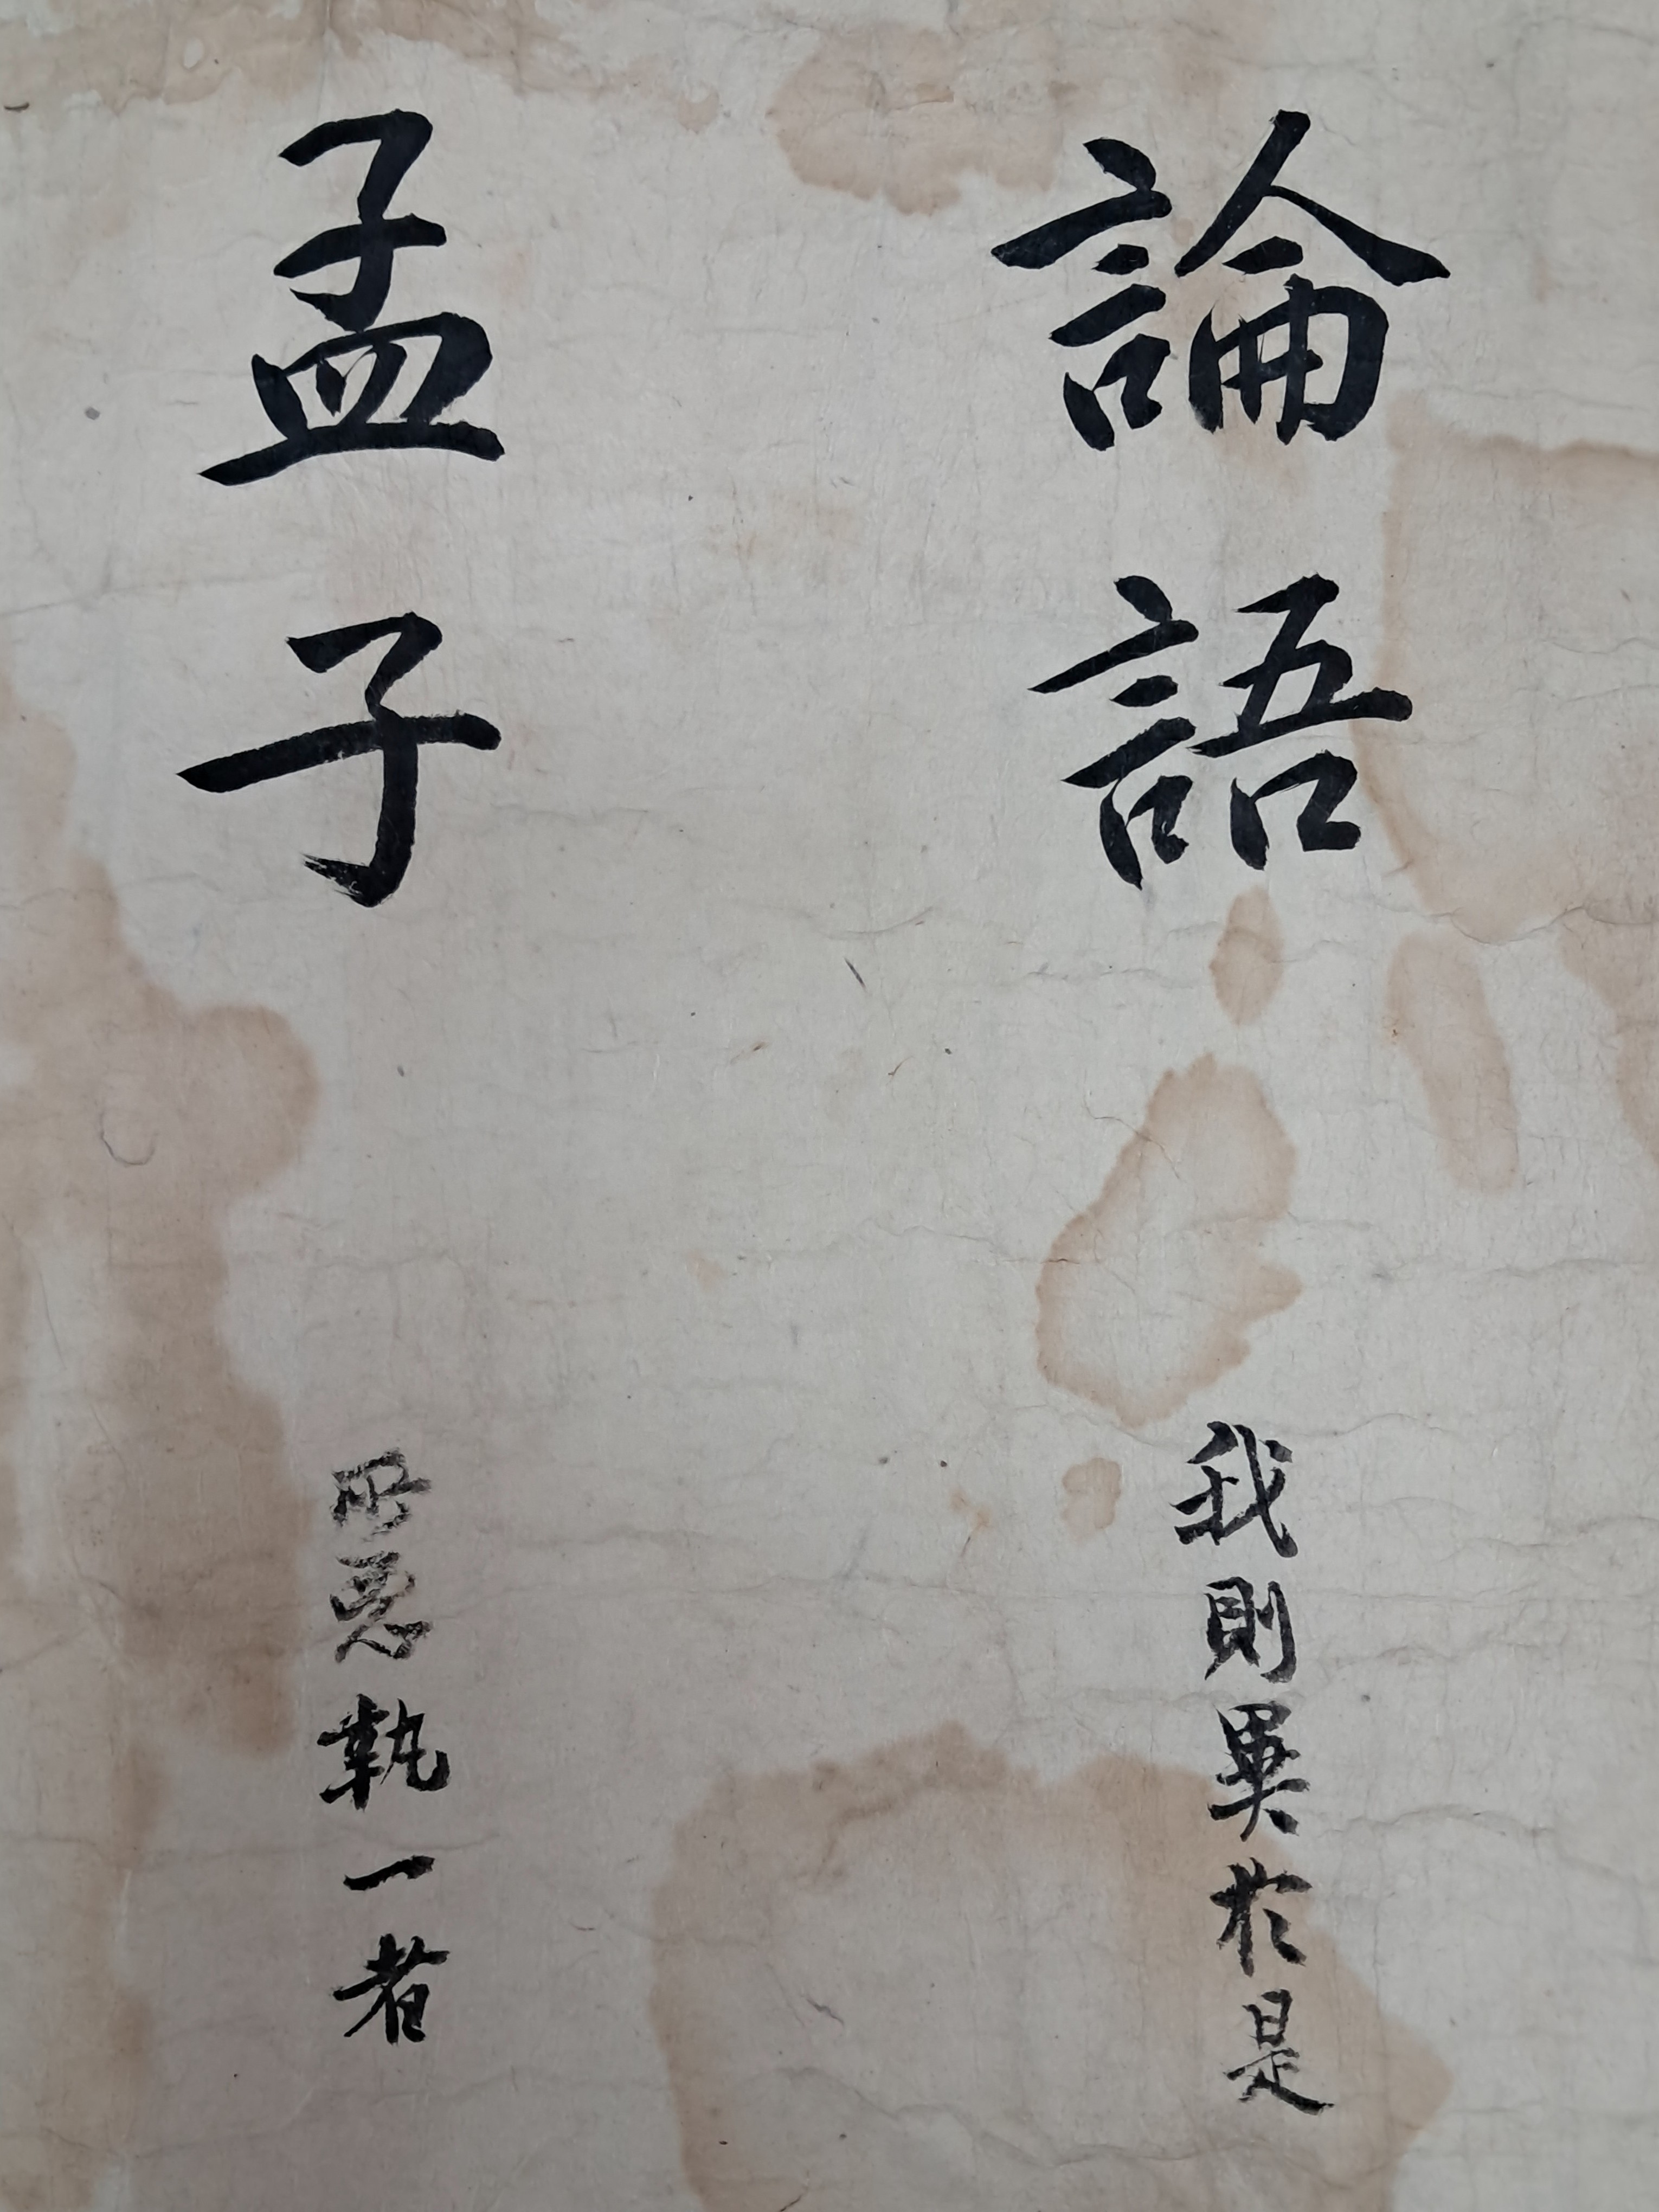 論語
我則異於是
孟子
所惡執一者